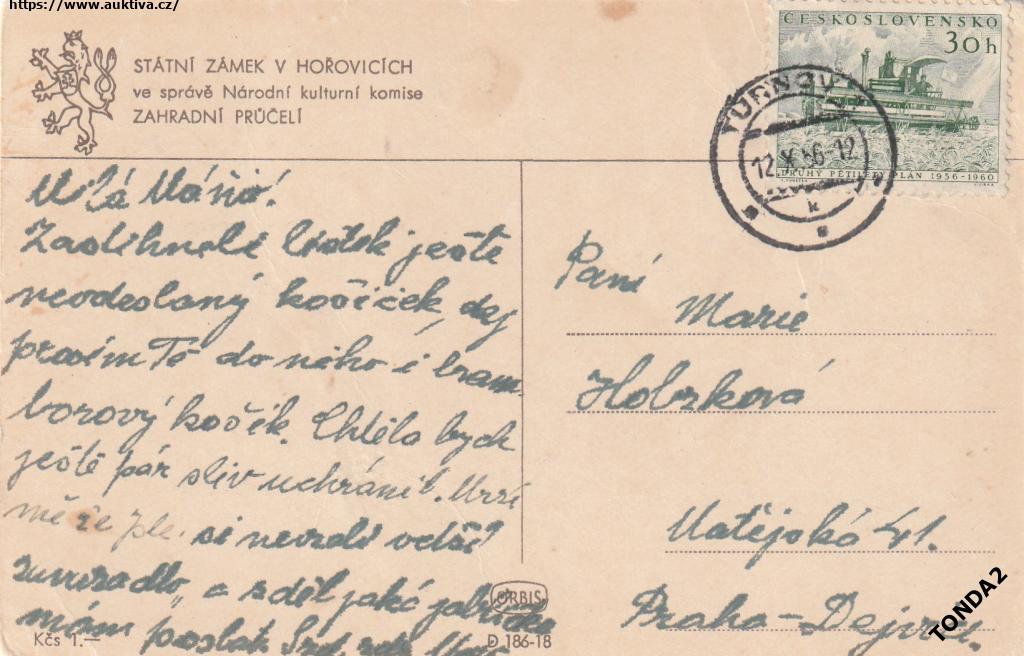 https://www.auktiva.cz/
ČESKOSLOVENSKO
30 h
STÁTNÍ ZÁMEK V HOŘOVICÍCH
ve správě Národní kulturní komise
ZAHRADNÍ PRŮČELÍ
TURNOV
12.X.56-12
k
DRUHÝ PĚTILETÝ PLÁN 1956-1960
Milá Máňo!
Zastihneli lístek ještě
neodeslaný košíček, dej
prosím Tě do něho i bram
borový košík. Chtěla bych
ještě pár sliv uchránit. Mrzí
mě že jste si nevzali větší
a sděl jaká jablíčka
mám poslat. Srd. zdr.
Paní
Marie
Holzková
Matějská 41.
Praha-Dejvice.
ORBIS
Kčs 1.—
D 186-18
TONDA2